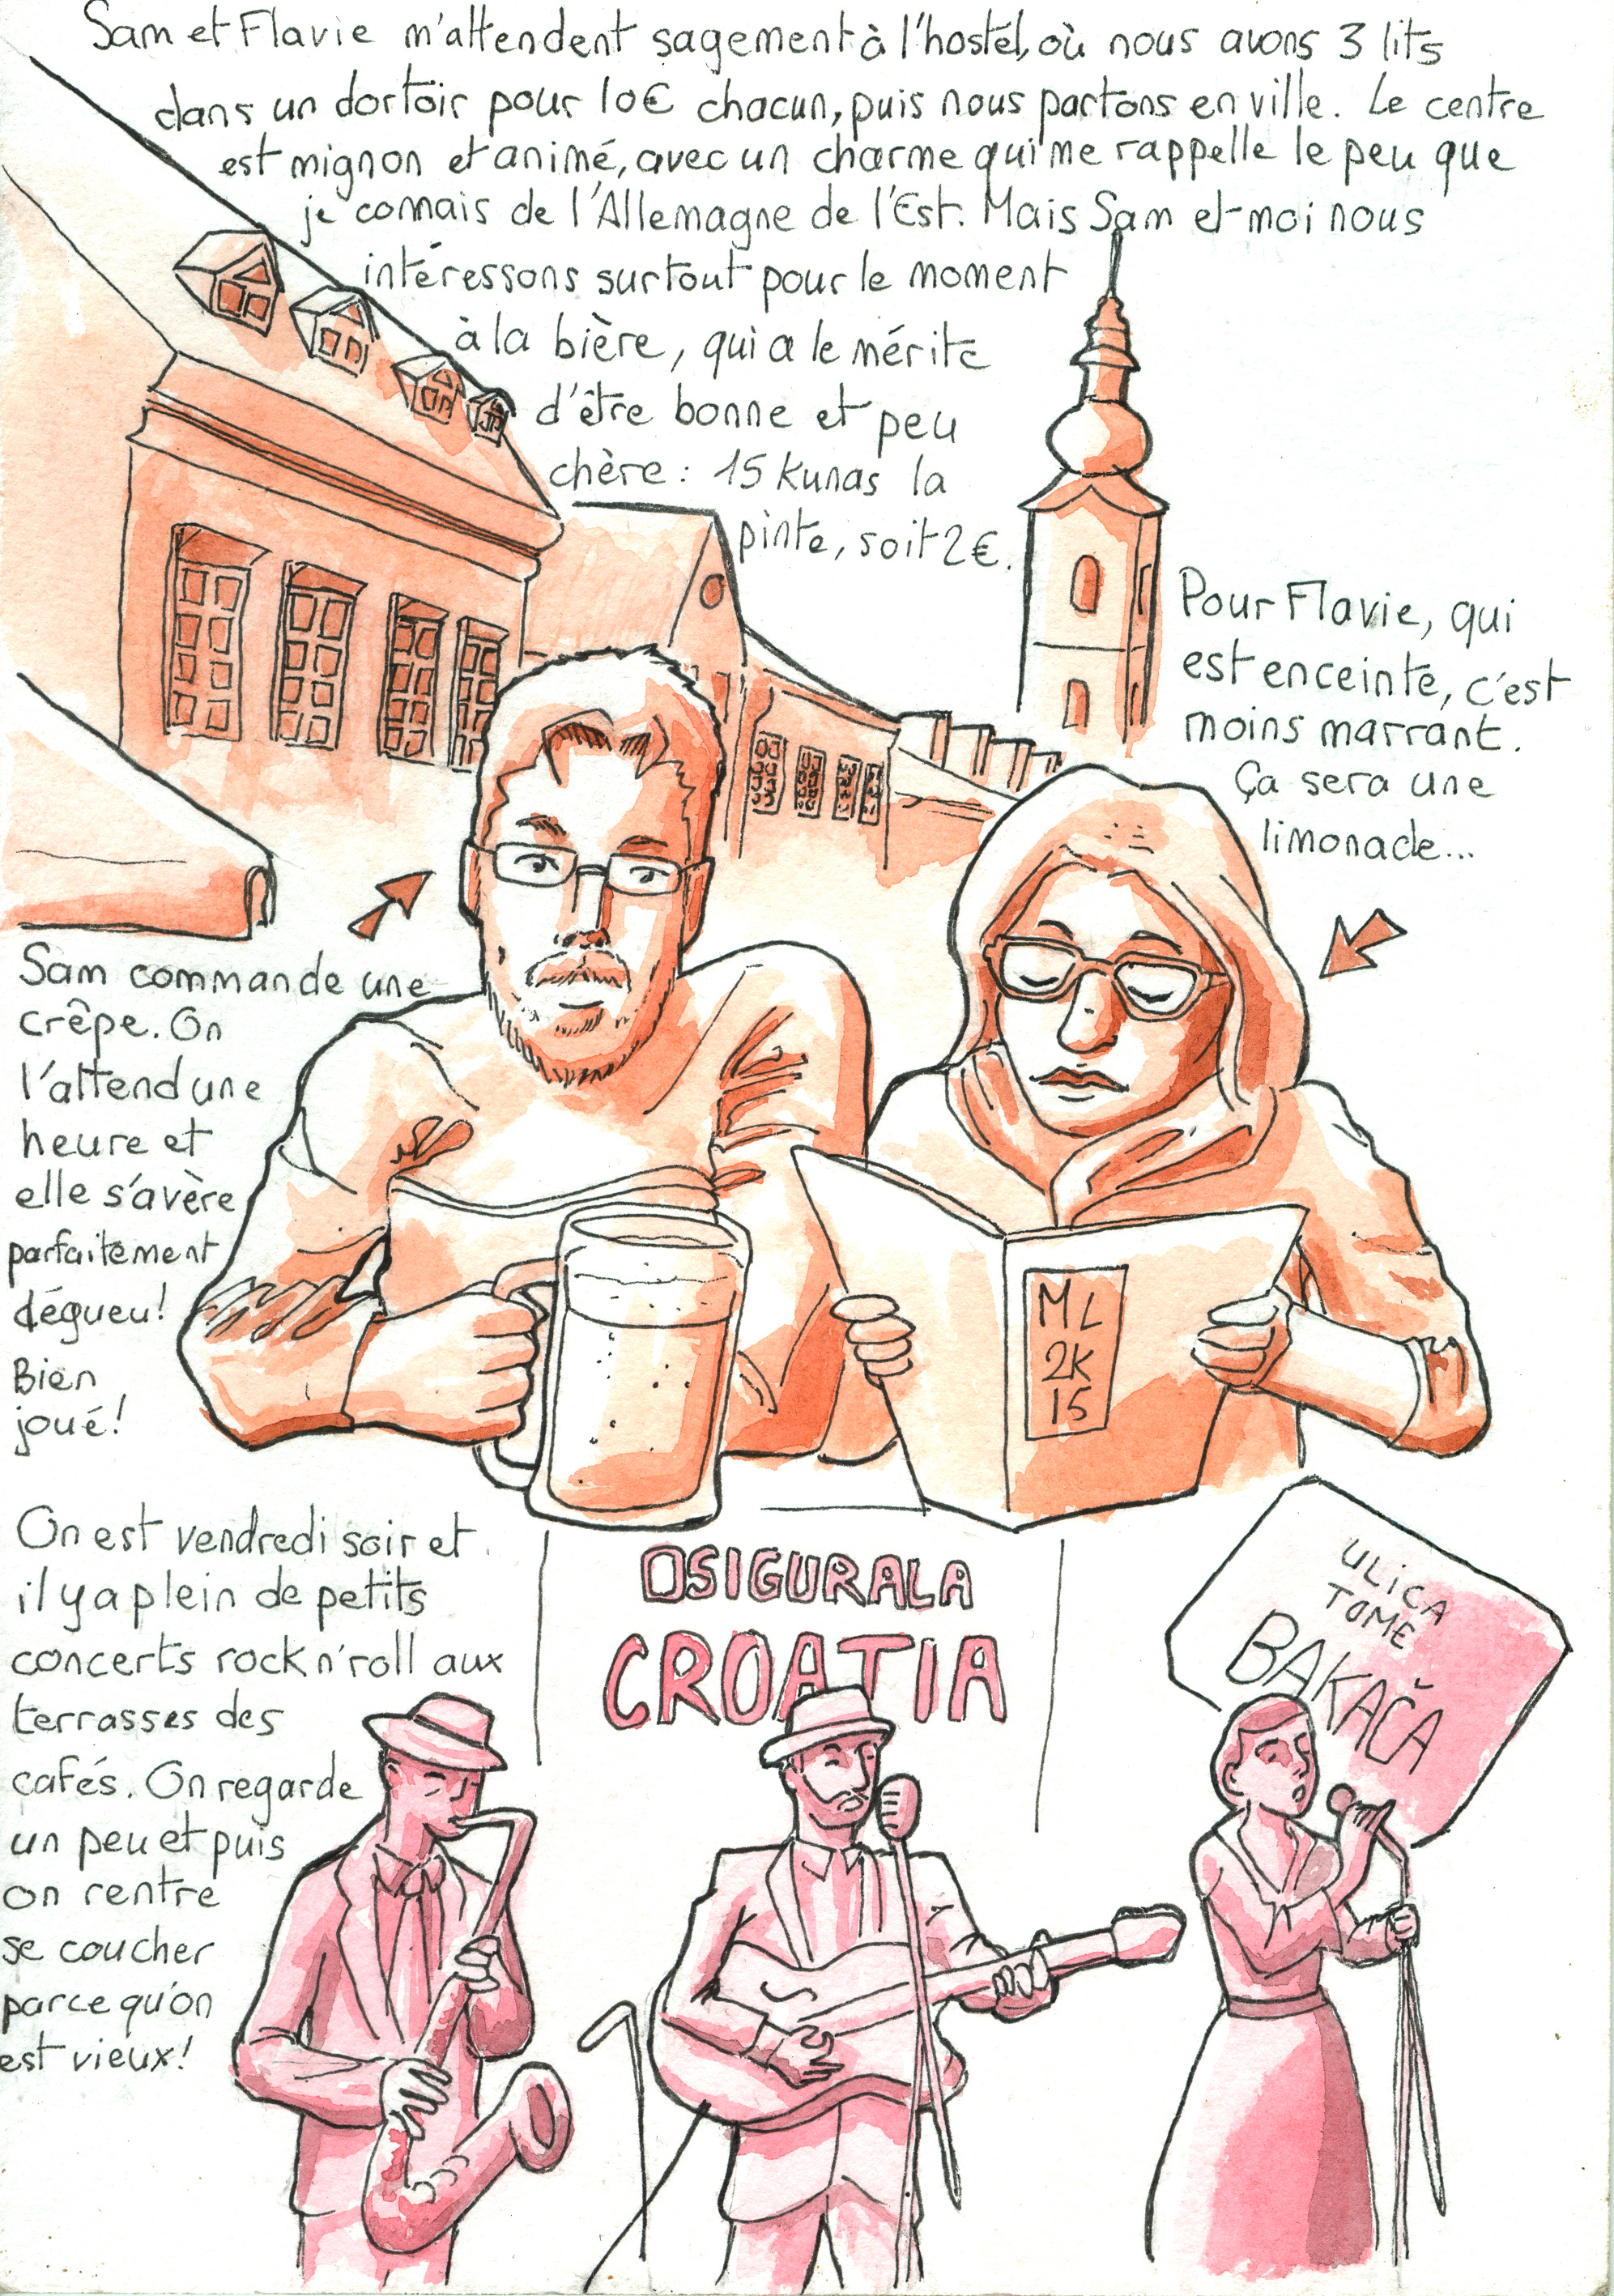 Sam et Flavie m'attendent sagement à l'hostel, où nous avons 3 lits
dans un dortoir pour 10€ chacun, puis nous partons en ville. Le centre
est mignon et animé, avec un charme qui me rappelle le peu que
je connais de l'Allemagne de l'Est. Mais Sam et moi nous
intéressons surtout pour le moment
à la bière, qui a le mérite
d'être bonne et peu
chère : 15 kunas la
pinte, soit 2€.
Pour Flavie, qui
est enceinte, c'est
moins marrant.
Ça sera une
limonade...
Sam commande une
crêpe. On
l'attend une
heure et
elle s'avère
parfaitement
dégueu!
Bien
joué!
ML
2K
15
On est vendredi soir et
il y a plein de petits
concerts rock n'roll aux
terrasses des
cafés. On regarde
un peu et puis
on rentre
se coucher
parce qu'on
est vieux!
OSIGURALA
CROATIA
ULICA
TOME
BAKAČA